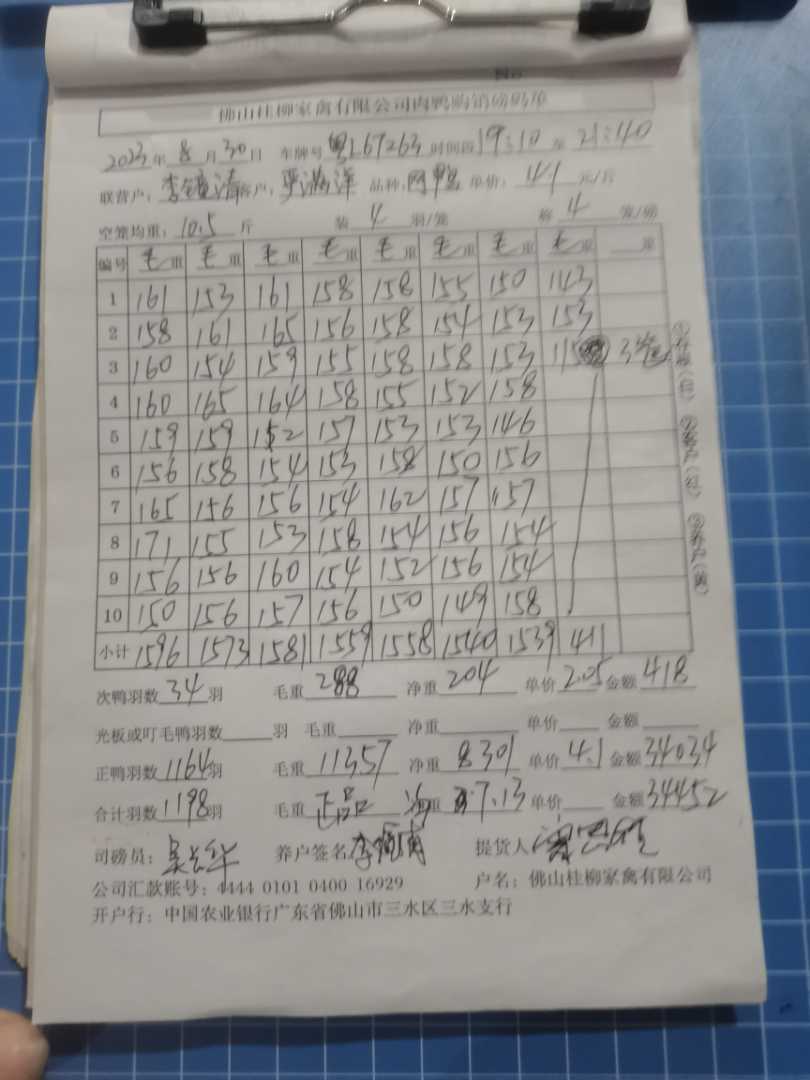 No
佛山桂柳家禽有限公司肉鸭购销磅码单
2023年8月30日 车牌号粤L67263时间段19:10至21:40
联营户:李镜清客户: 品种: 单价:4.1元/斤
空笼均重:10.5斤 装4羽/笼 称4笼/磅
编号 毛重 毛重 毛重 毛重 毛重 毛重 毛重 毛重 重
1 161 153 161 158 158 155 150 143
2 158 161 165 156 158 154 153 153
3 160 154 159 155 158 158 153 115 3笼
4 160 165 164 158 155 152 158
5 159 159 152 157 153 153 146
6 156 158 154 153 158 150 156
7 165 156 156 154 162 157 157
8 171 155 153 158 154 156 154
9 156 156 160 154 152 156 154
10 150 156 157 156 150 149 158
小计 1596 1573 1581 1559 1558 1540 1539 411
次鸭羽数34羽 毛重288 净重204 单价2.05金额418
光板或叮毛鸭羽数 羽 毛重 净重 单价 金额
正鸭羽数1164羽 毛重11357 净重8301 单价4.1金额34034
合计羽数1198羽 毛重正品 均重7.13单价 金额34452
司磅员:吴 华 养户签名 提货人
公司汇款账号:4444 0101 0400 16929 户名:佛山桂柳家禽有限公司
开户行:中国农业银行广东省佛山市三水区三水支行
①存根(白) ②客户(红) ③养户(黄)